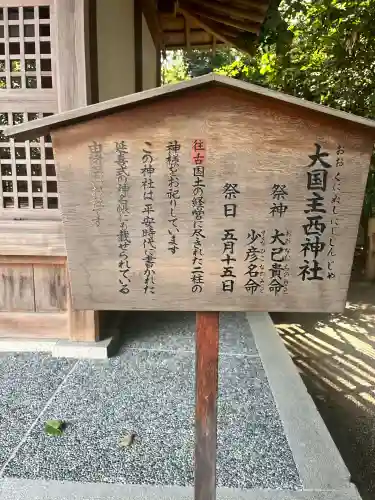 大国主西神社
おおくにぬしにしじんじゃ
祭神 大己貴命
おおなむちのみこと
少彦名命
すくなひこなのみこと
祭日 五月十五日
往古国土の経営に尽くされた二柱の
神様をお祀りしています
この神社は平安時代に書かれた
延喜式の神名帳にも載せられている
由緒ある社です